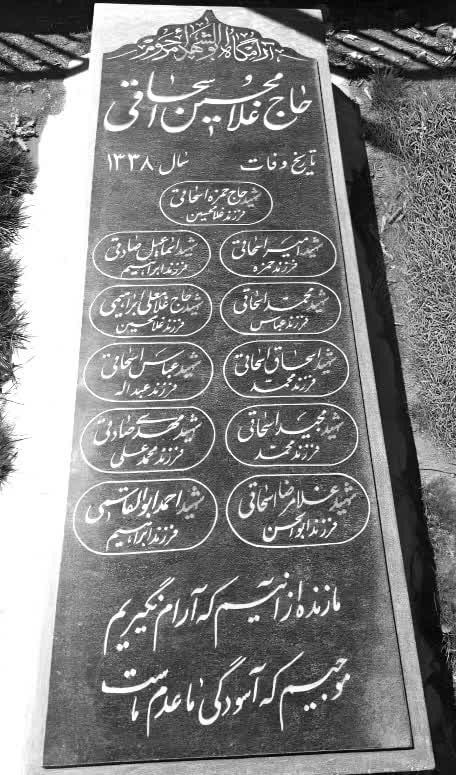 آرامگاه ابوالشهدا مرحوم
حاج غلامحسین اسحاقی
تاریخ وفات سال ۱۳۳۸
شهید حاج حمزه اسحاقی
فرزند غلامحسین
شهید امیر اسحاقی
فرزند حمزه
شهید اسماعیل صادقی
فرزند ابراهیم
شهید محمد اسحاقی
فرزند عباس
شهید حاج غلامعلی ابراهیمی
فرزند غلامحسین
شهید اسحاق اسحاقی
فرزند محمد
شهید عباس اسحاقی
فرزند عبداله
شهید مجید اسحاقی
فرزند محمد
شهید مهدی صادقی
فرزند محمدعلی
شهید غلامرضا اسحاقی
فرزند ابوالحسن
شهید احمد ابوالقاسمی
فرزند ابراهیم
ما زنده از آنیم که آرام نگیریم
موجیم که آسودگی ما عدم ماست